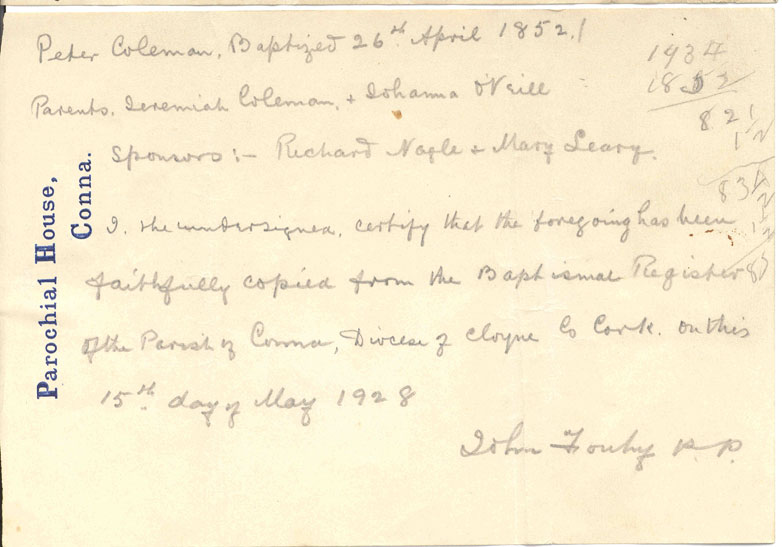 Peter Coleman, Baptized 26th April 1852.
Parents. Jeremiah Coleman, + Johanna O'Neill
Sponsors:- Richard Nagle + Mary Leary.
I, the undersigned, certify that the foregoing has been
faithfully copied from the Baptismal Register
of the Parish of Conna, Diocese of Cloyne Co Cork. on this
15th day of May 1928
John P.P.
Parochial House,
Conna.
1934
1852
82
83